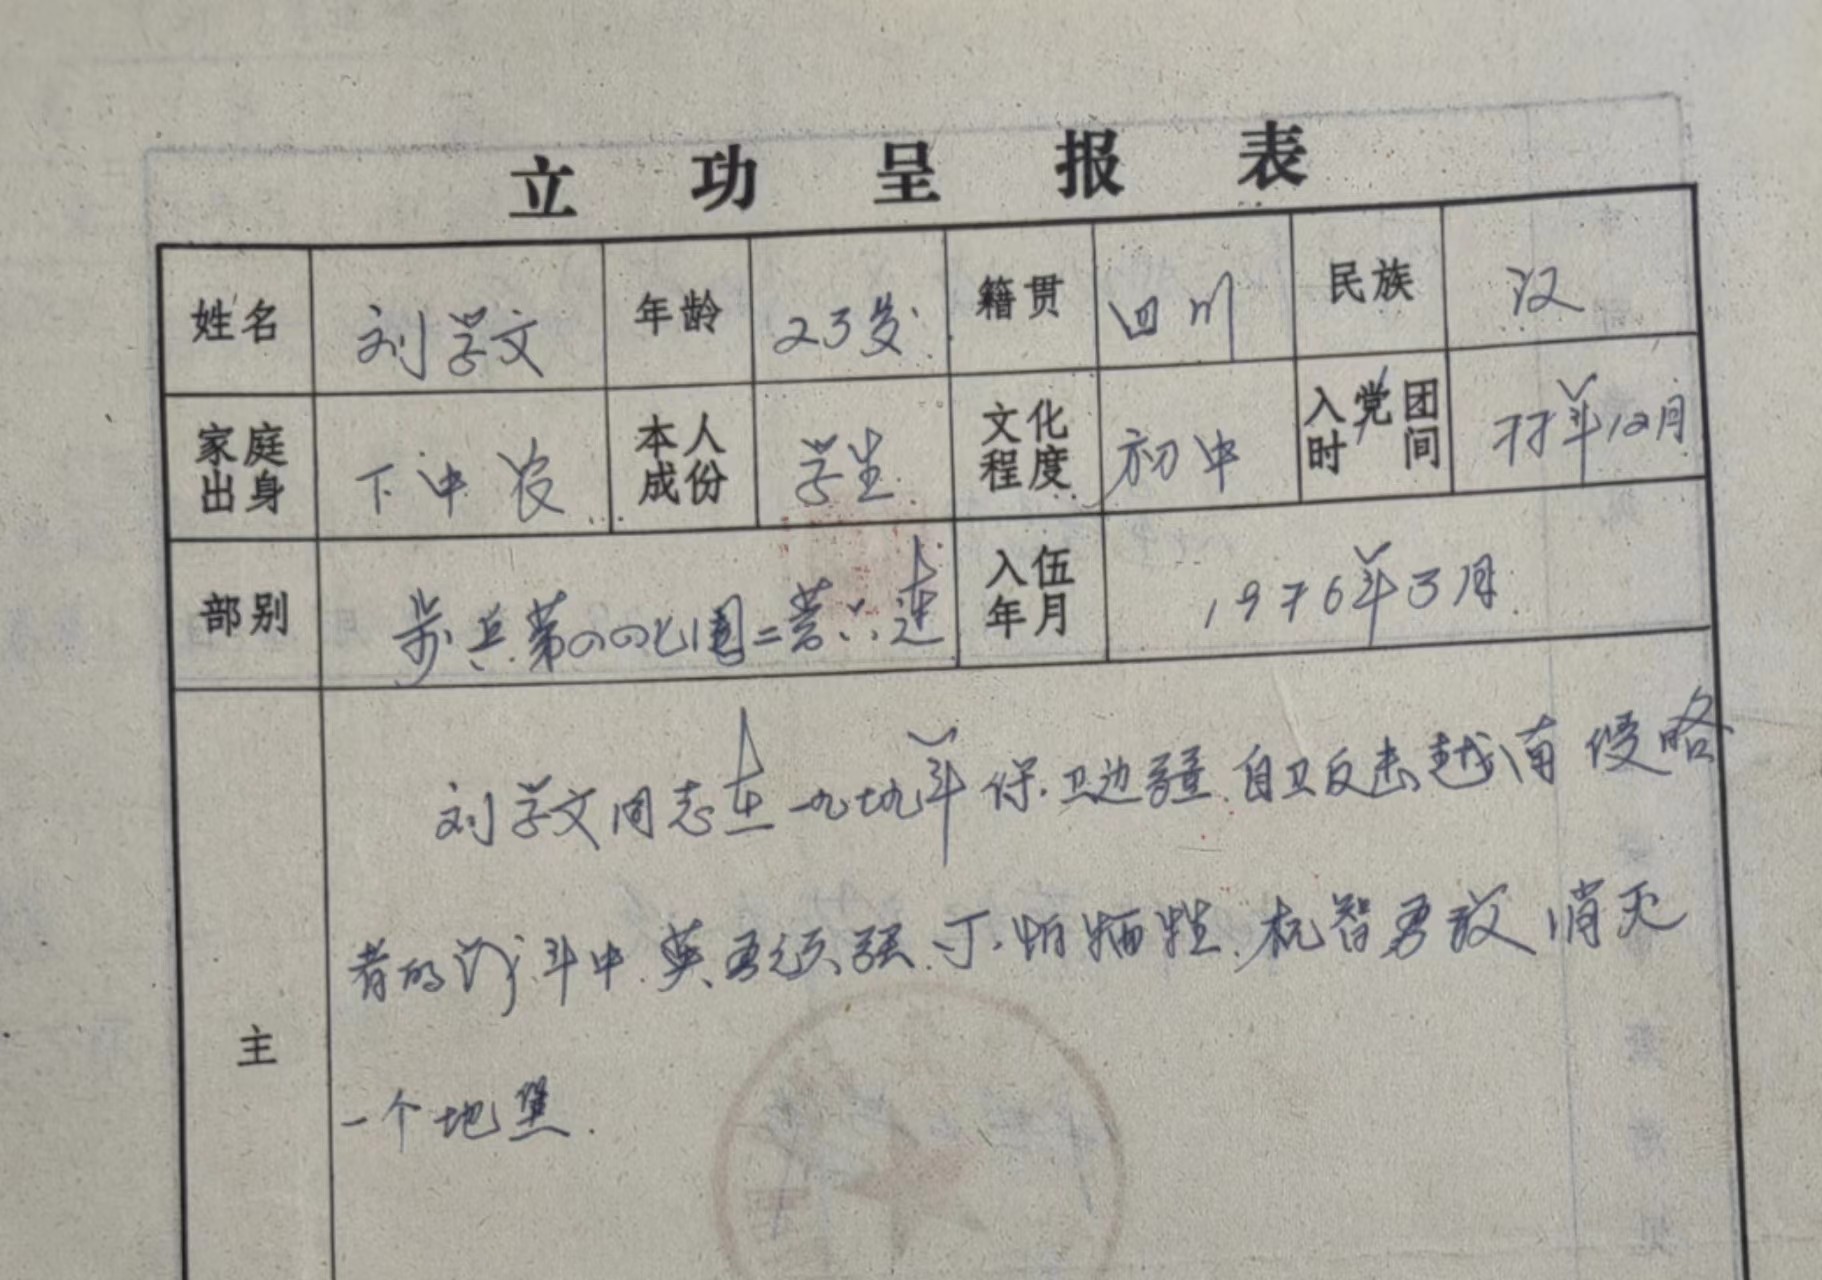 立功呈报表
姓名 刘学文 年龄 23岁 籍贯 四川 民族 汉
家庭出身 下中农 本人成份 学生 文化程度 初中 入党团时间 77年12月
部别 步兵第四四七团二营六连 入伍年月 1976年3月
刘学文同志在一九七九年保卫边疆自卫反击越南侵略
者的战斗中英勇顽强、不怕牺牲、机智勇敢消灭
主
一个地堡.